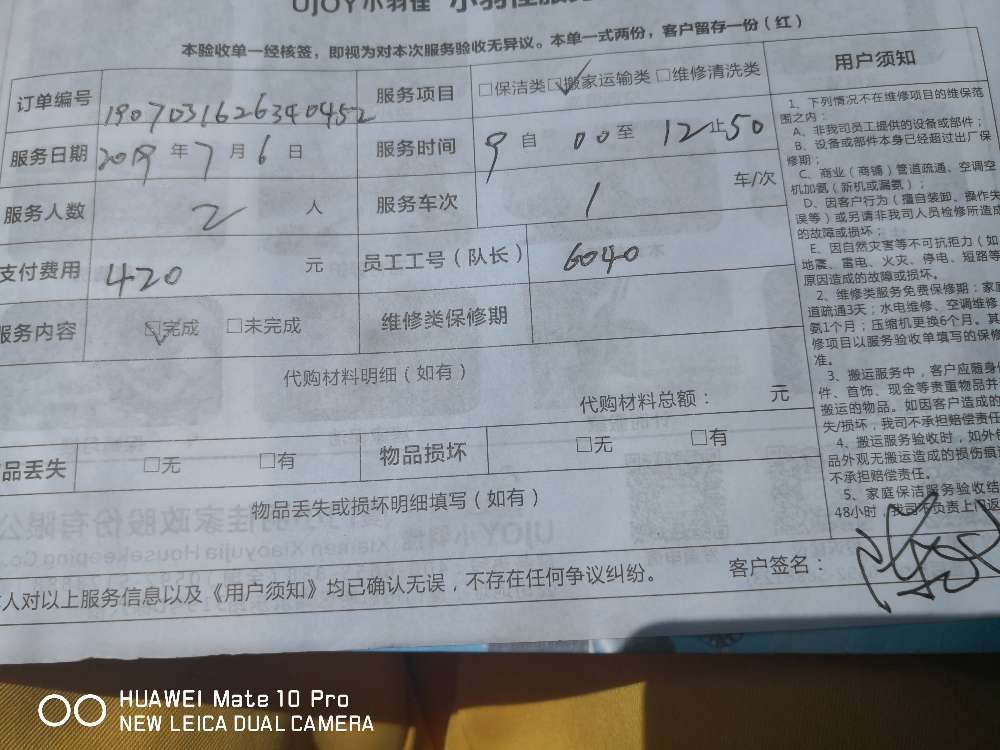 UJOY小羽佳
本验收单一经核签，即视为对本次服务验收无异议。本单一式两份，客户留存一份（红）
订单编号 190703162634 0452 服务项目 □保洁类 ☑搬家运输类 □维修清洗类
服务日期 2019 年 7 月 6 日 服务时间 9 自 00 至 12 止 50
服务人数 2 人 服务车次 1 车/次
支付费用 420 元 员工工号（队长） 6040
服务内容 ☑完成 □未完成 维修类保修期
代购材料明细（如有）
代购材料总额： 元
品丢失 □无 □有 物品损坏 □无 □有
物品丢失或损坏明细填写（如有）
人对以上服务信息以及《用户须知》均已确认无误，不存在任何争议纠纷。 客户签名：
用户须知
1、下列情况不在维修项目的维保范
围之内：
A、非我司员工提供的设备或部件；
B、设备或部件本身已经超过出厂保
修期；
C、商业（商铺）管道疏通、空调空
机加氨（新机或漏氨）；
D、因客户行为（擅自装卸、操作失
误等）或另请非我司人员检修所造成
的故障或损坏；
E、因自然灾害等不可抗拒力（如
地震、雷电、火灾、停电、短路等
原因造成的故障或损坏。
2、维修类服务免费保修期：家庭
道疏通3天；水电维修、空调维修
氨1个月；压缩机更换6个月。其
修项目以服务验收单填写的保修
准。
3、搬运服务中，客户应随身
件、首饰、现金等贵重物品并
搬运的物品。如因客户造成的
失/损坏，我司不承担赔偿责任
4、搬运服务验收时，如外包
品外观无搬运造成的损伤痕
不承担赔偿责任。
5、家庭保洁服务验收结
48小时，我司不负责上门返
HUAWEI Mate 10 Pro
NEW LEICA DUAL CAMERA